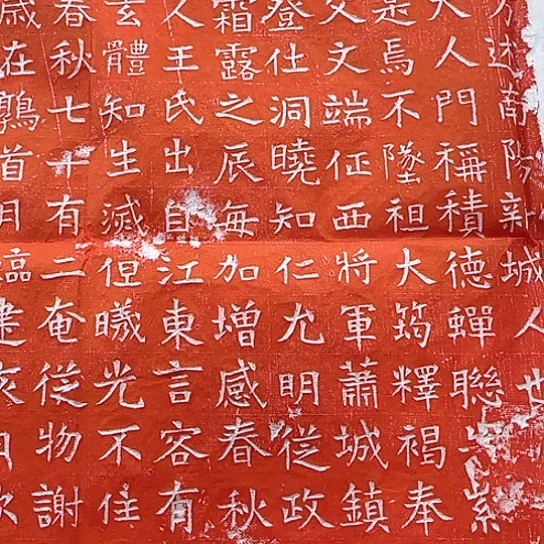 述蔚防新城人也
大人門稱積德蟬聯
是焉不墜祖大筠釋褐奉
父文端征西將軍蕭城鎮
登仕洞曉知仁尤明從政
霜露之辰每加增感春秋
人王氏出自江東言容有
玄體知生滅但曦光不住
春秋七十有二奄從物謝
歲在鶉首月臨建亥日次